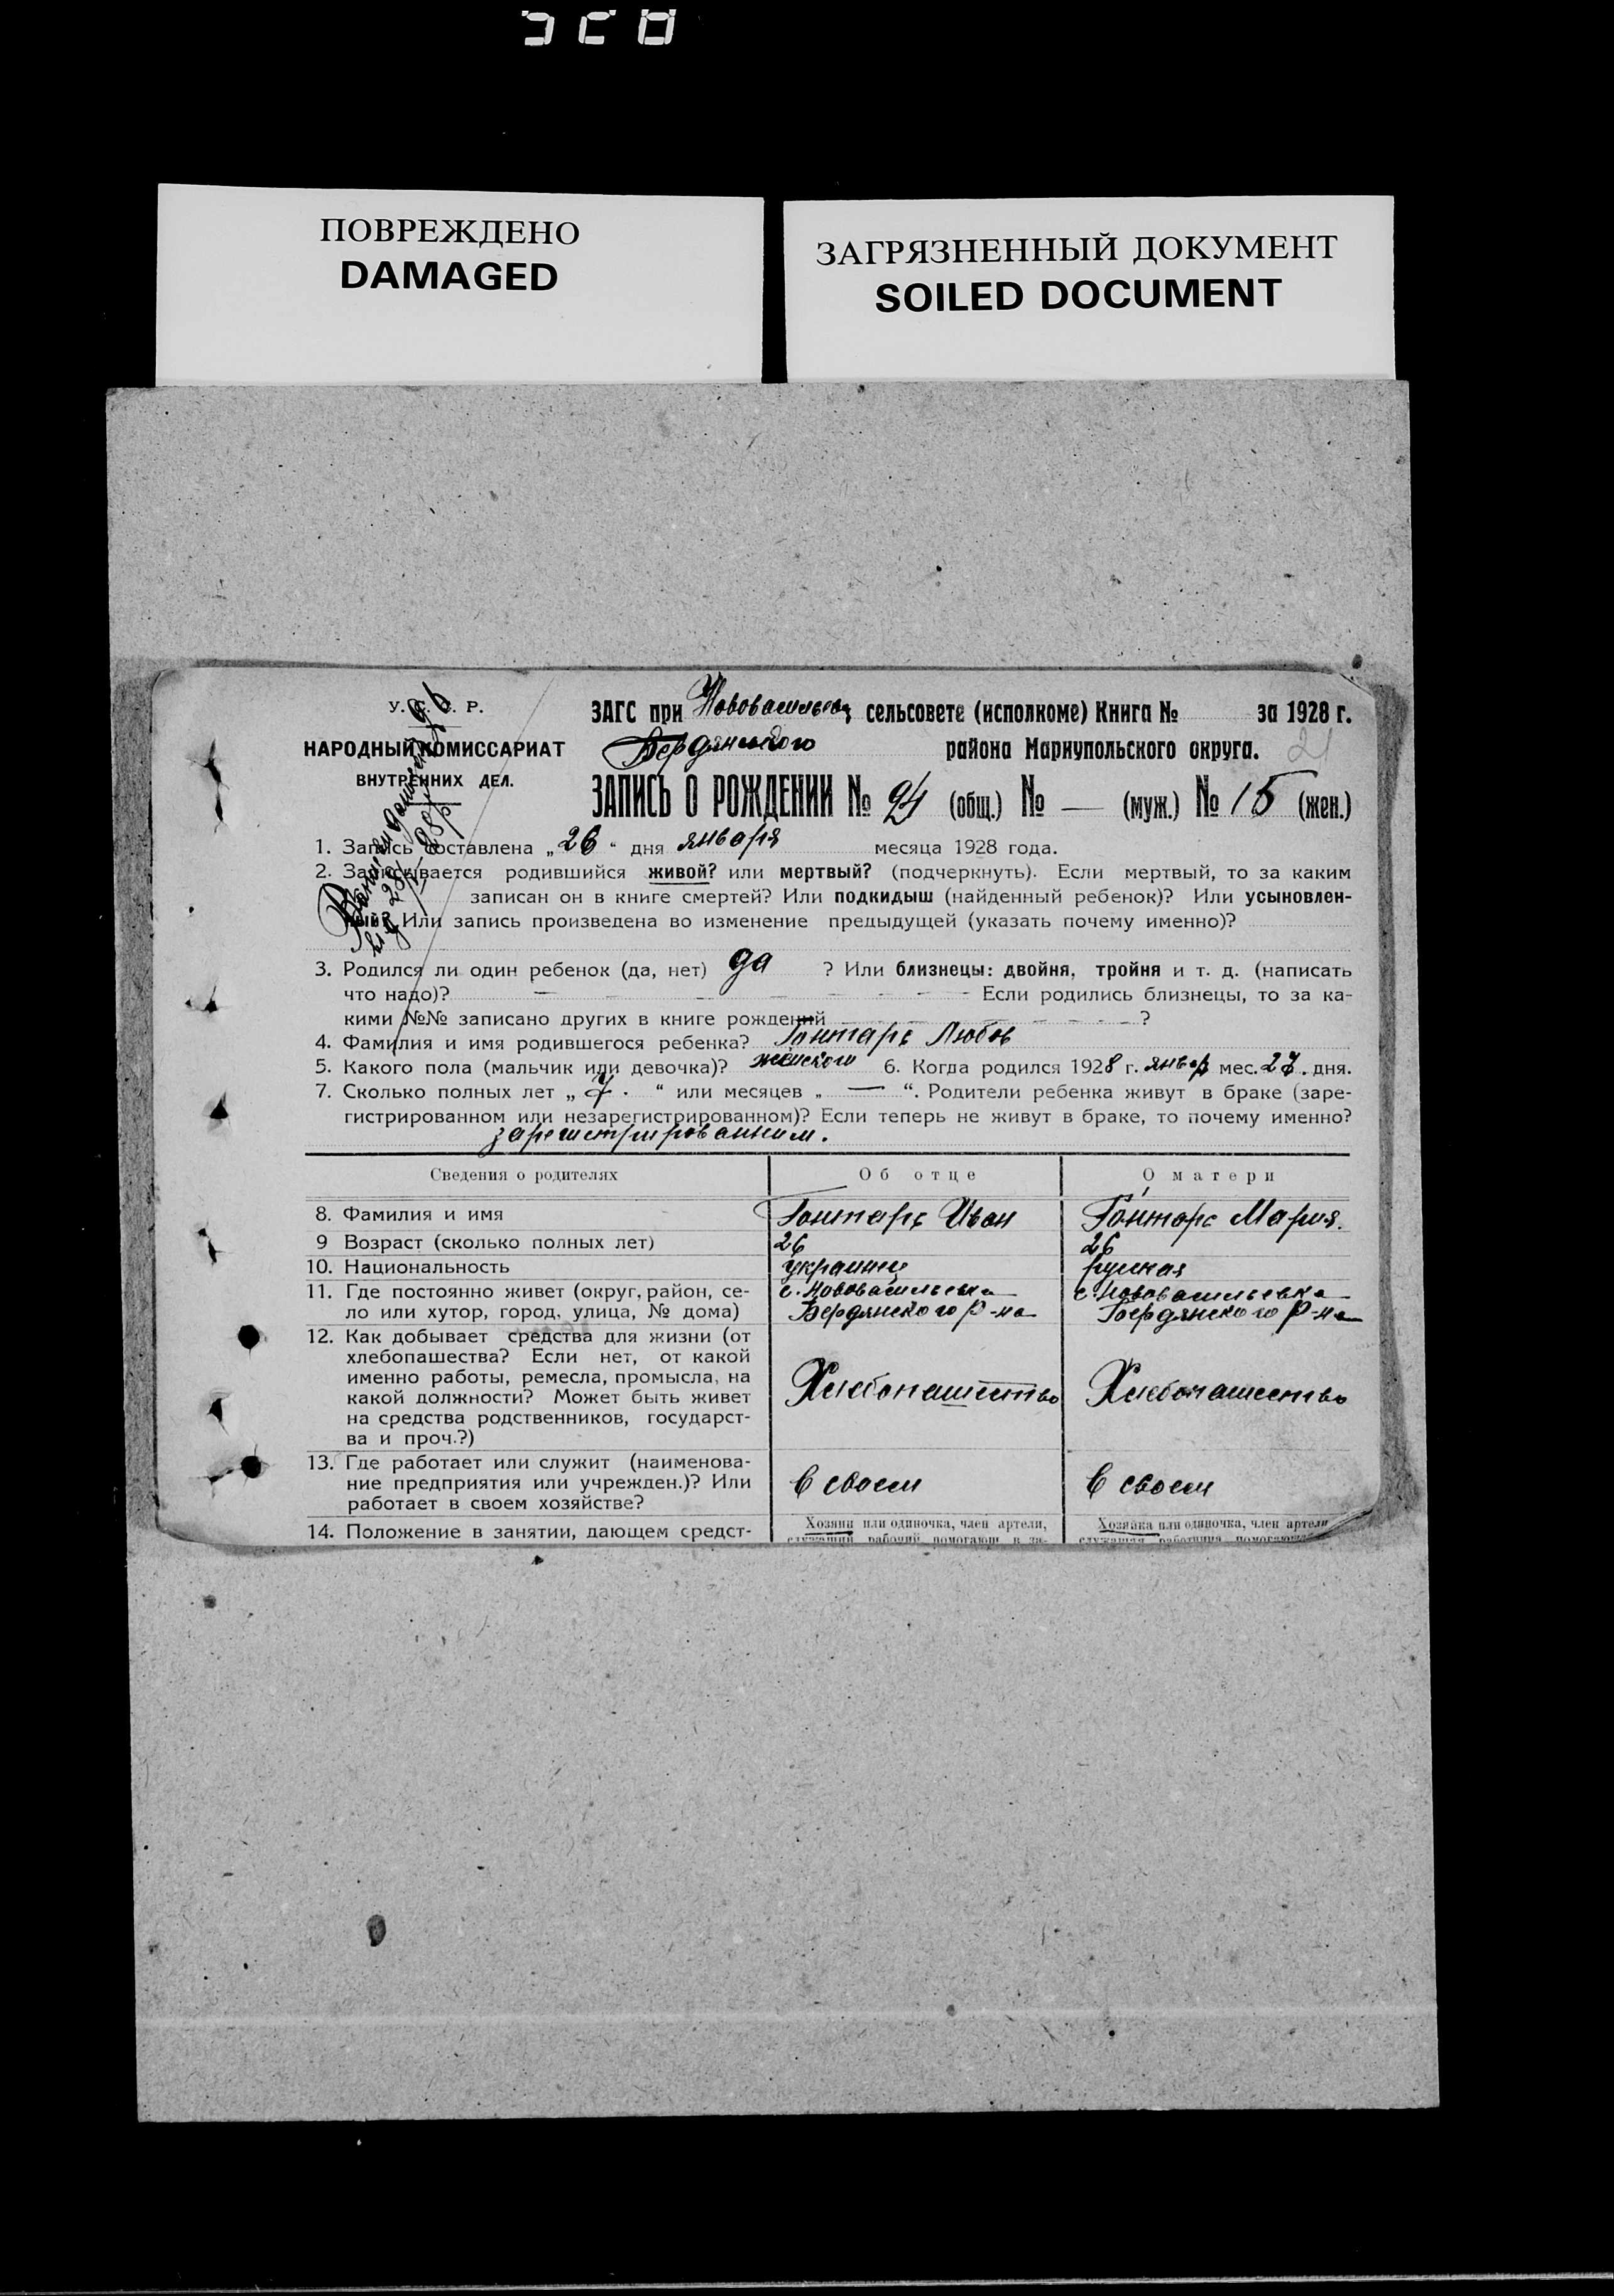 ПОВРЕЖДЕНО
DAMAGED
ЗАГРЯЗНЕННЫЙ ДОКУМЕНТ
SOILED DOCUMENT
У. С. С. Р.
НАРОДНЫЙ КОМИССАРИАТ
ВНУТРЕННИХ ДЕЛ.
ЗАГС при Нововасильев сельсовете (исполкоме) Книга № за 1928 г.
Бердянского района Мариупольского округа.
21
ЗАПИСЬ О РОЖДЕНИИ № 24 (общ.) № — (муж.) № 15 (жен.)
1. Запись составлена „26“ дня января месяца 1928 года.
2. Записывается родившийся живой? или мертвый? (подчеркнуть). Если мертвый, то за каким
записан он в книге смертей? Или подкидыш (найденный ребенок)? Или усыновлен-
ный? Или запись произведена во изменение предыдущей (указать почему именно)?
3. Родился ли один ребенок (да, нет) да ? Или близнецы: двойня, тройня и т. д. (написать
что надо)? — — — — — Если родились близнецы, то за ка-
кими №№ записано других в книге рождений — — — — ?
4. Фамилия и имя родившегося ребенка? Гонтарь Любов
5. Какого пола (мальчик или девочка)? женского 6. Когда родился 1928 г. январ мес. 27. дня.
7. Сколько полных лет „ “ или месяцев „ — “. Родители ребенка живут в браке (заре-
гистрированном или незарегистрированном)? Если теперь не живут в браке, то почему именно?
зарегистрированным.
Сведения о родителях Об отце О матери
8. Фамилия и имя Гонтарь Иван Гонтарь Мария.
9 Возраст (сколько полных лет) 26 26
10. Национальность украинец русская
11. Где постоянно живет (округ, район, се- с. Нововасильевка с. Нововасильевка
ло или хутор, город, улица, № дома) Бердянского Р-на Бердянского Р-на
12. Как добывает средства для жизни (от
хлебопашества? Если нет, от какой
именно работы, ремесла, промысла, на
какой должности? Может быть живет Хлебопашество Хлебопашество
на средства родственников, государст-
ва и проч.?)
13. Где работает или служит (наименова-
ние предприятия или учрежден.)? Или в своем в своем
работает в своем хозяйстве?
14. Положение в занятии, дающем средст- Хозяин или одиночка, член артели, Хозяйка или одиночка, член артели
служащий рабочий помогающ. в за- служащая работница помогающ